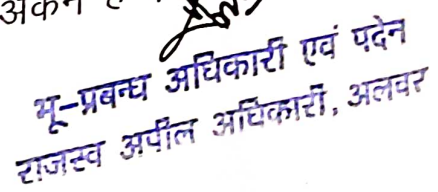 अंकन
भू-प्रबन्ध अधिकारी एवं पदेन
राजस्व अपील अधिकारी, अलवर